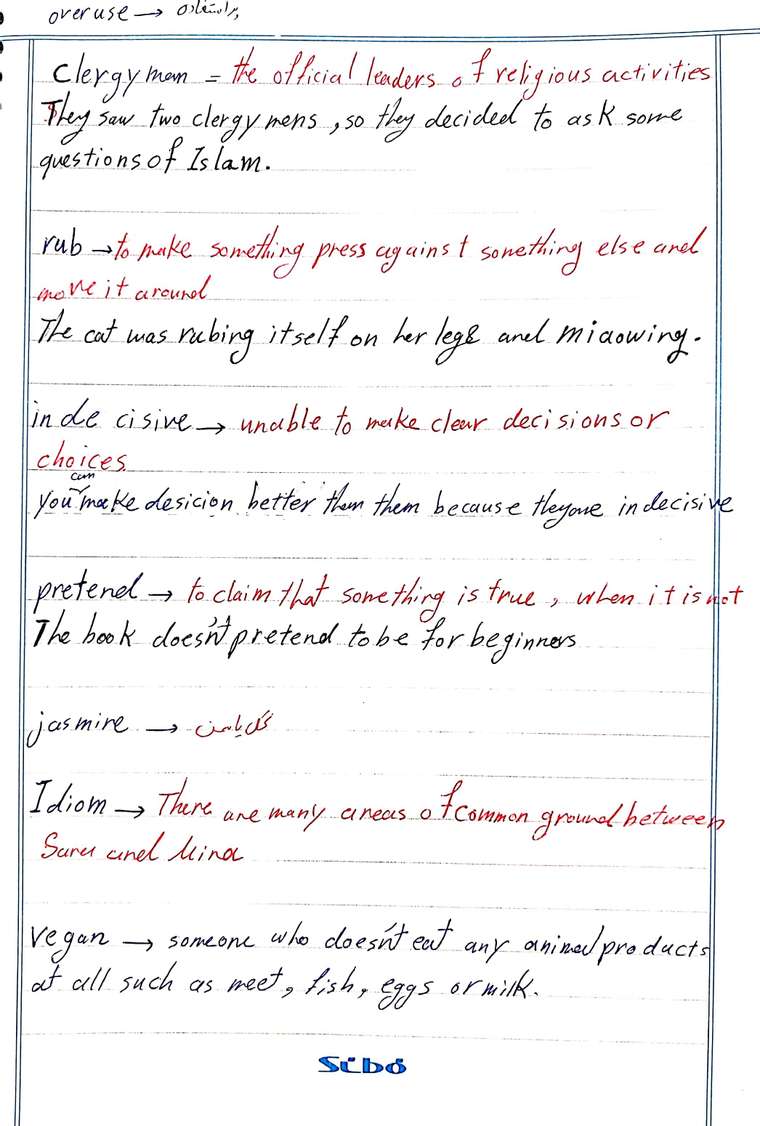 overuse → پراستفاده
Clergyman = the official leaders of religious activities
They saw two clergymens, so they decided to ask some
questions of Islam.
rub → to make something press against something else and
move it around
The cat was rubing itself on her legs and miaowing.
inde cisive → unable to make clear decisions or
choices
can
you make desicion better than them because they are indecisive
pretend → to claim that something is true, when it is not
The book doesn't pretend to be for beginners
jasmine → گل یاسن
Idiom → There are many areas of common ground between
Sara and Mina
vegan → someone who doesn't eat any animal products
at all such as meet, fish, eggs or milk.